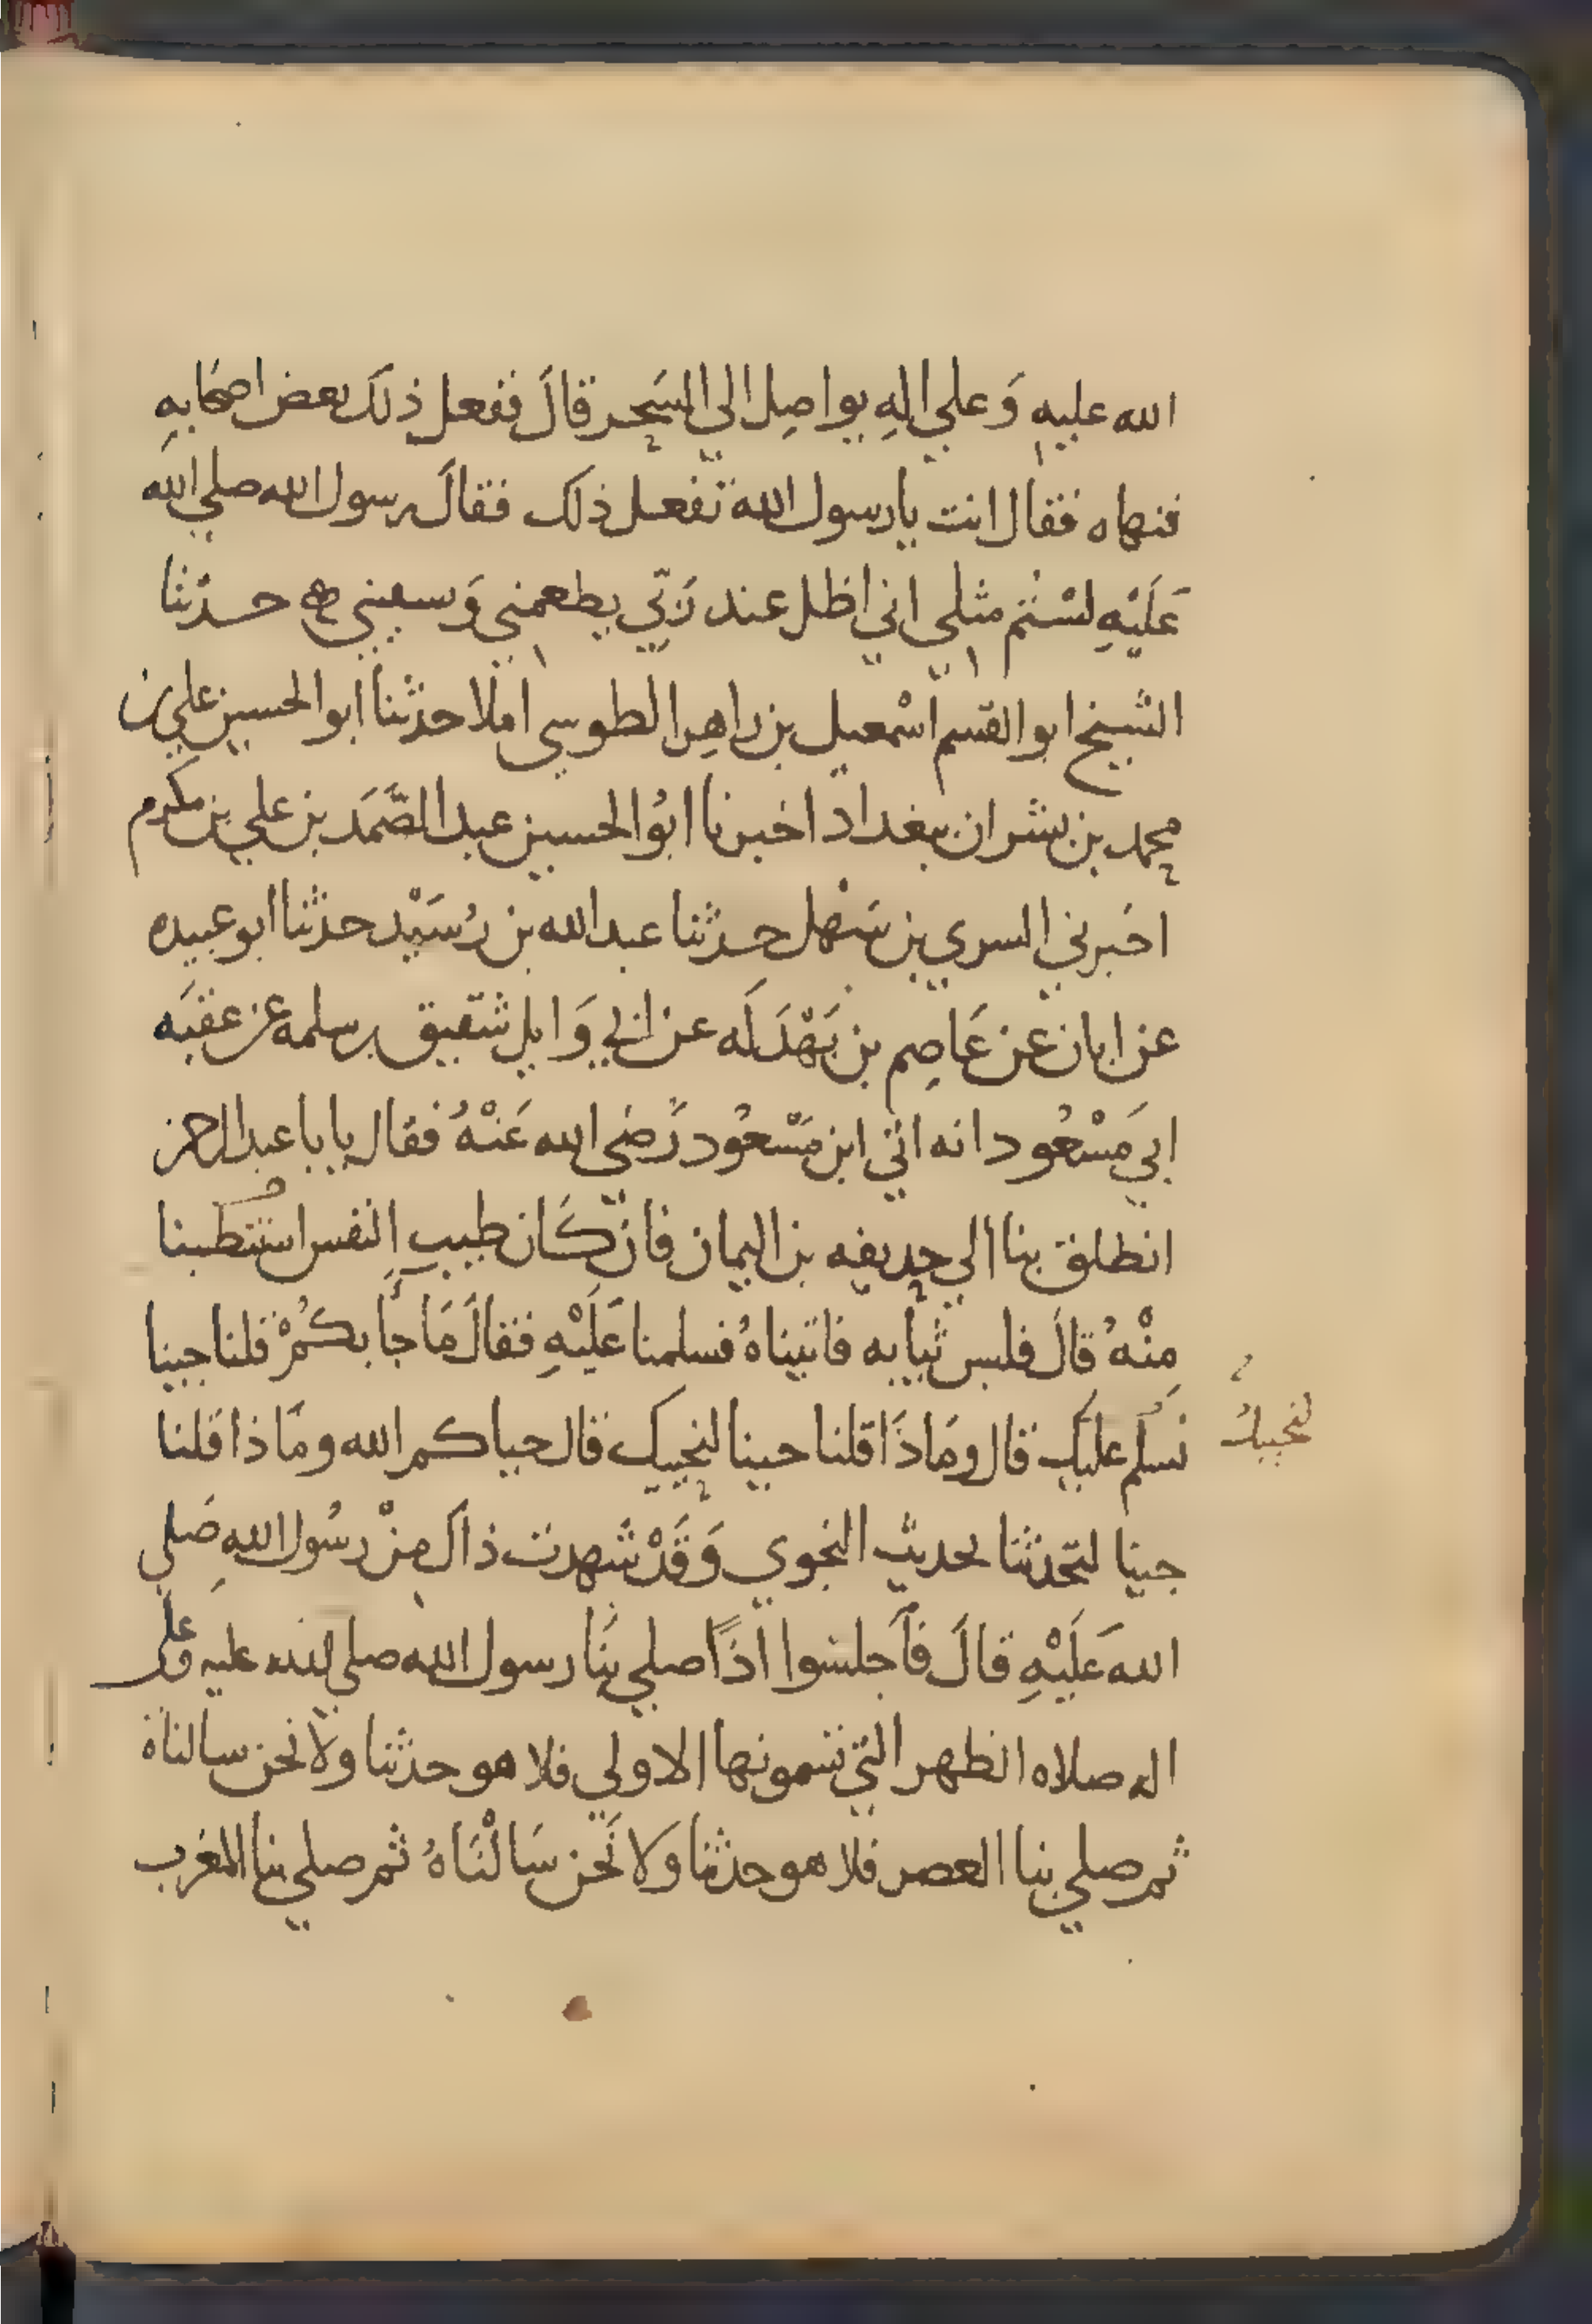 الله عليه وَعلي الهِ يواصِل الي السَحر قالَ ففعل ذلكَ بعض اصحَابهِ
فنهاه فقال انت يا رسول الله تفعل ذلك فقالَ رسول الله صلي الله
عَلَيْهِ لسْتُم مثلي اني اظل عند رَبّي يطعمني وَيسقيني حدثنا
الشيخ ابو القسم اسْمعيل بن زاهر الطوسي املا حدثنا ابو الحسين علي بن
محمد بن بشران ببغداد اخبرنا ابوُ الحسين عبد الصَّمَد بن علي بن مكرم
اخبرني السري بن سَهل حدثنا عبد الله بن رُسَيْد حدثنا ابو عبيده
عن ابان عن عَاصِم بن بَهْدَلَه عن ابي وَايل شقيق بن سلمه عن عقبَه
ابي مَسْعُود انه اتي ابن مَسْعُود رَضي الله عَنْهُ فقال يا با عبد الرحمن
انطلق بنا الي حديفه بن اليمان فانْ كَان طيب النفس استطبنا
مِنْهُ قالَ فلبس ثيابه فاتيناهُ فسلمنا عَلَيْهِ فقالَ مَا جَأ بكُمْ قلنا جينا
نسَلم عليك قال ومَاذَا قلنا حينا لنحييك قال حياكم الله ومَاذا قلنا
لنحييك
جينا لتحدثنا بحديث النجوي وَقَدْ شهدت ذاك مِنْ رسُول الله صَلي
الله عَلَيْهِ قالَ فاَجلسُوا اذًا صلي بنَا رسول الله صلي الله عليه وعَلي
اله صلاه الظهر التي تسمونها الاولي فلا هو حدثنا ولا نحن سالناهُ
ثم صلي بنا العصر فلا هو حدثنا ولا نَحن سَالْنَاهُ ثم صلي بنا المغرب